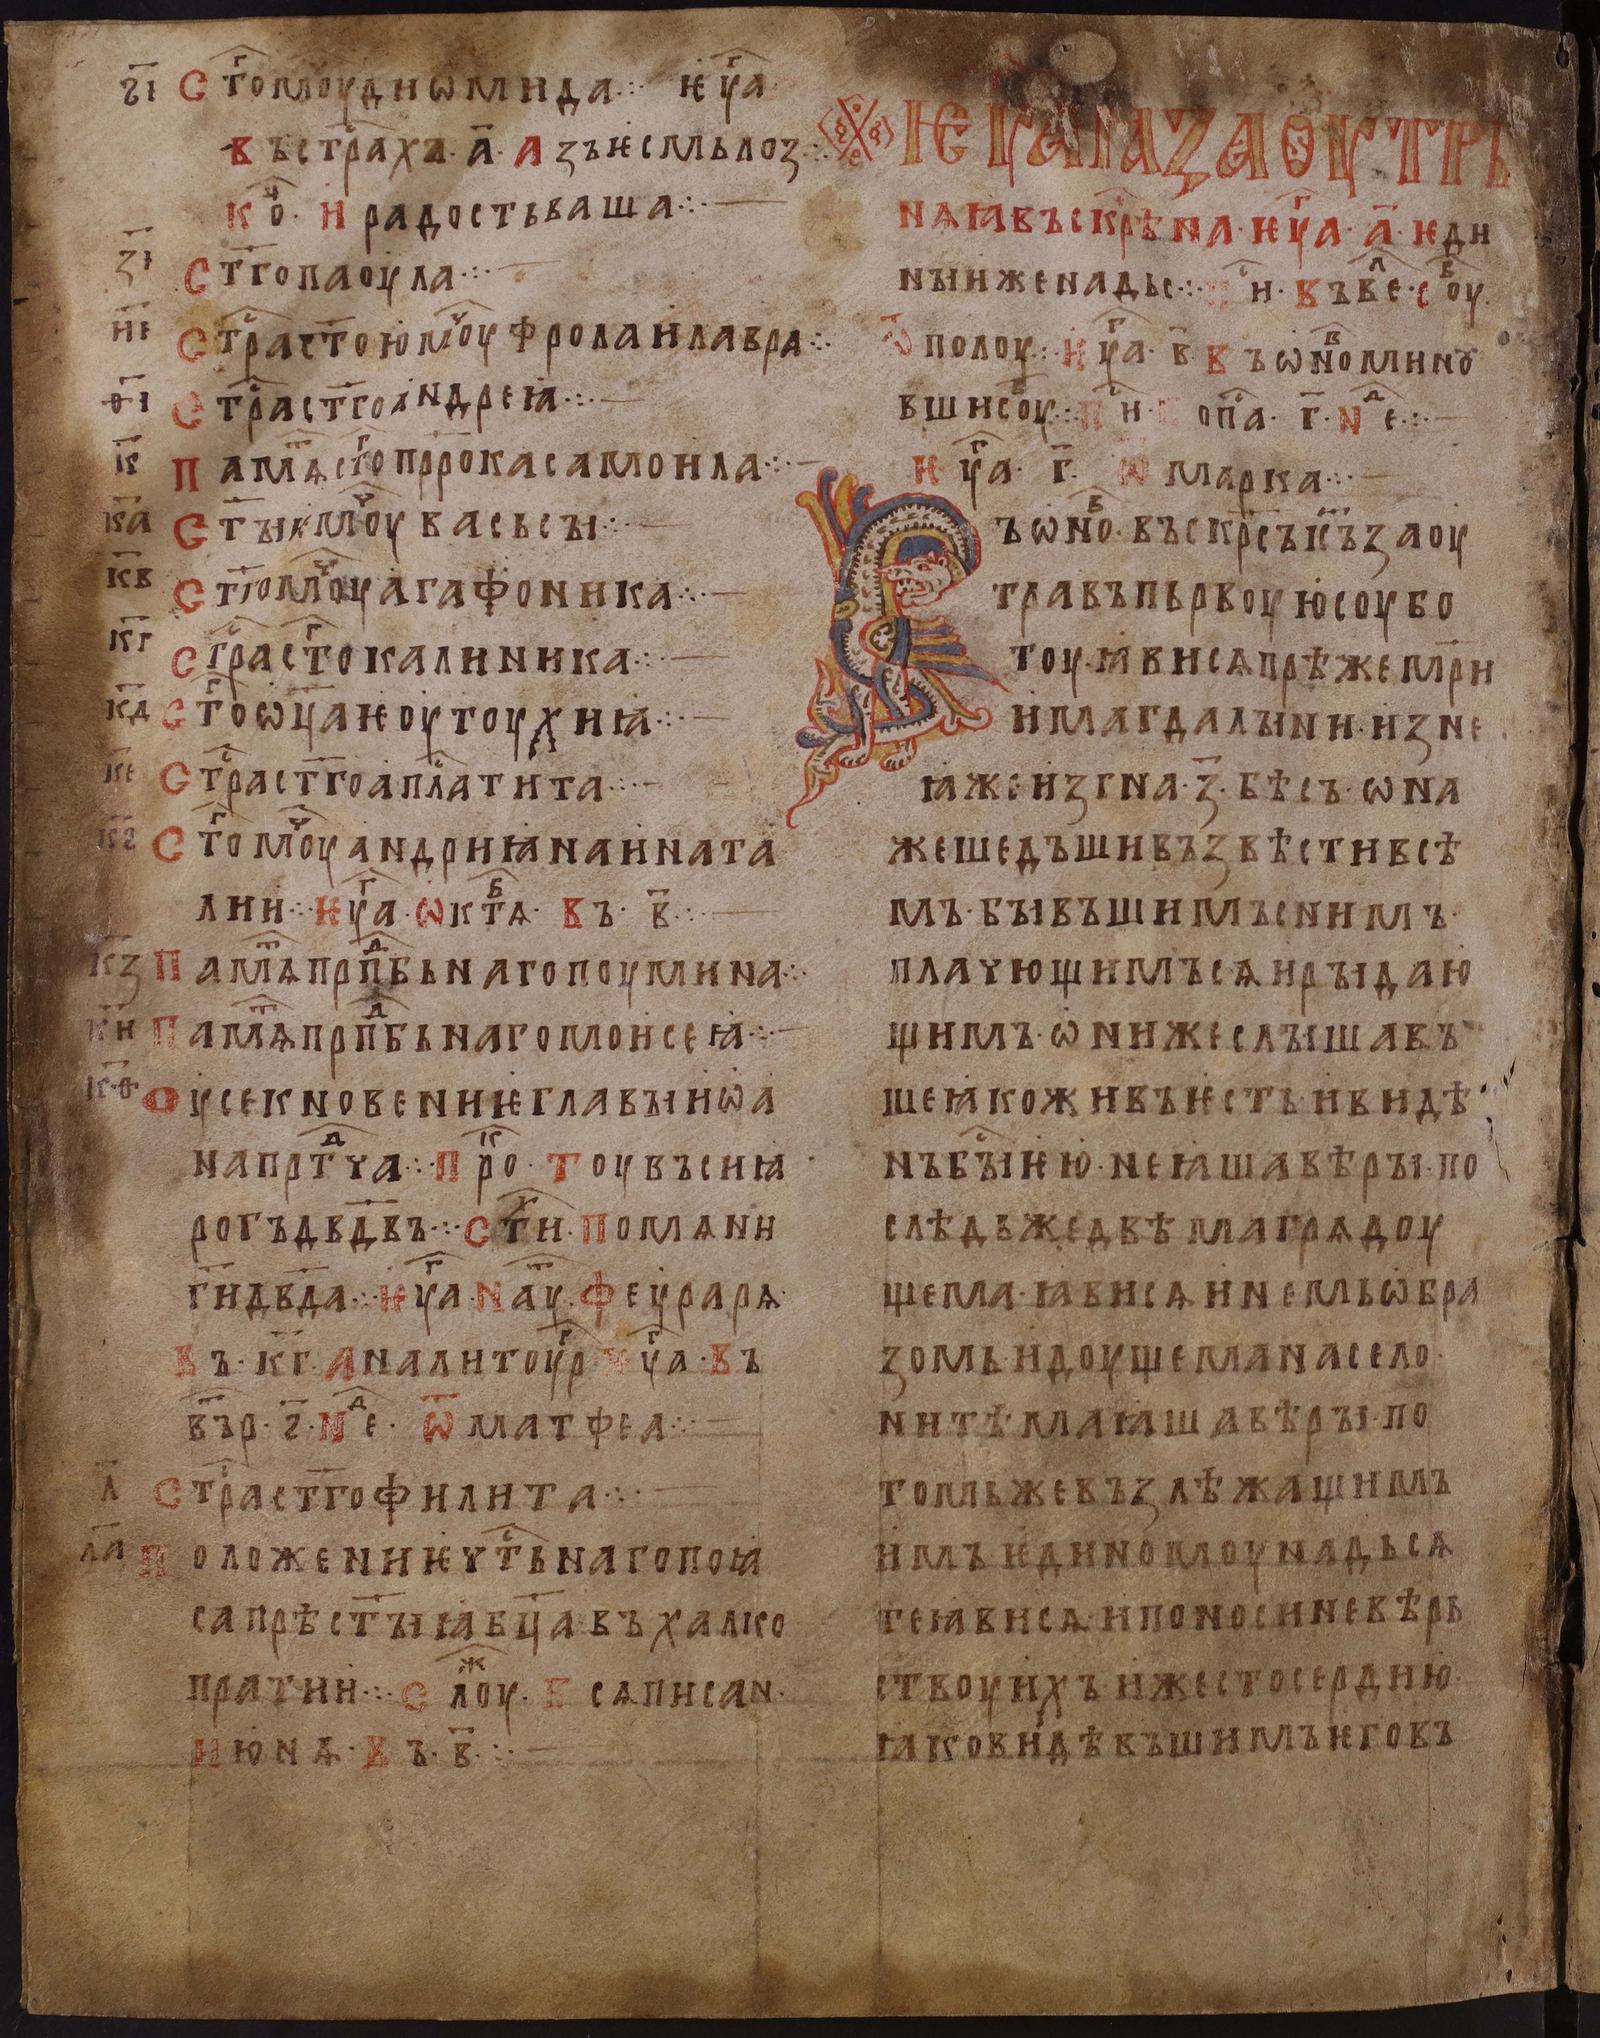 ѕ҃і Стⷢ҇омоуⷱ҇диѡмида ⁘ ѥуⷢ҇а
въстрⷭ҇аха·а҃·Азъѥсмьлоз ⁘
коⷰ҇·И радостьваша ⁘
з҃і Ст҃гопаоула ⁘
и҃і Стрⷭ҇аст҃оюмⷱ҇оуфролаилавра ⁘
ѳ҃і Стрⷭ҇аст҃гоандреꙗ ⁘
к҃ Памⷮ҇ѧстⷢ҇опр҃рокасамоила ⁘
к҃а Ст҃ыꙗмⷱ҇оувасьсы ⁘
к҃в Ст҃гоммⷱ҇оуагафоника ⁘
к҃г Стрⷭ҇астⷢ҇окалиника ⁘
к҃д Стⷢ҇оѡцаѥоутоухиꙗ ⁘
к҃е Стрⷭ҇аст҃гоапⷭ҇латита ⁘
к҃ѕ Стⷢ҇омⷱ҇оуандриꙗнаината
лии ⁘ ѥуⷢ҇а·ѡктⷠ҇ѧ· въ·в҃ ⁘
к҃з Памⷮ҇ѧпрпⷣ҇бьнагопоумина ⁘
к҃и Памⷮ҇ѧпрпⷣ҇бьнагомоисеꙗ ⁘
к҃ѳ Оусекновениѥглавыиѡ҃а
напртⷣ҇ча ⁘ Прⷦ҇о·Тоувъсиꙗ
рогъдв҃двъ ⁘ Стⷯ҇и·Помѧни
г҃идв҃да ⁘ ѥуⷢ҇а·Наⷱ҇·феурарѧ
въ·к҃г·Аналитоуⷢ҇р ѥуⷢ҇а·въ
в҃ър·ѕ҃·Нⷣ҇е· Ѿматфеа ⁘
л҃ Стрⷭ҇аст҃гофилита ⁘
л҃а Положениѥчтⷭ҇ьнагопоꙗ
сапрѣст҃ыꙗбц҃авъхалко
пратии ⁘ Слⷤ҇оу·В сѧписан·
Июнѧ·Въ·в҃· ⁘
Ѥуаꙗзаоутрь
нѧꙗвъскрⷭ҇ьна·ѥуⷢ҇а·а҃·ѥди
ныиженадьс ⁘ и·Въвеⷧ҇·соуⷠ҇
Ѿполоу ⁘ ѥуⷢ҇а·в҃·Въѡнⷡ҇оминꙋ
вшисоⷠ҇у ⁘ Пиⷭ҇·опⷭ҇а·г҃·Нⷣ҇е ⁘
ѥуⷢ҇а·г҃· Ѿмарка ⁘
Въѡнⷡ҇о·въскр҃съіс҃ъзаоу
травъпьрвоуюсоубо
тоу·ꙗвисѧпрѣжемр҃и
имагдалыни·изне
ꙗжеизгна·з҃·бѣсъ·ѡна
жешедъшивъзвѣстивсѣ
мъ·бывъшимъснимъ·
плачющимъсѧирыдаю
щимъ·ѡнижеслышавъ
шеꙗкоживъѥсть·ивидѣ
нъбⷭ҇ыѥю·неꙗшавѣры·по
слѣдьжедвѣмагрѧдоу
щема·ꙗвисѧинемьѡбра
зомь·идоущеманасело·
нитѣмаꙗшавѣры·по
томьжевъзлѣжащимъ
имъѥдиномоунадьсѧ
теꙗвисѧ·ипоносиневѣрь
ствоуихъижестосердию·
ꙗковидѣвъшимъѥговъ